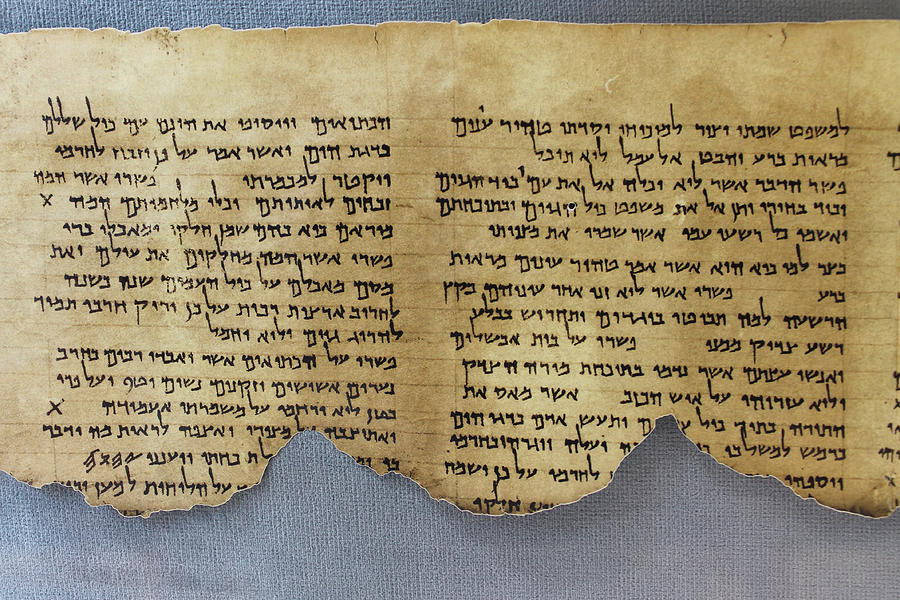 למשפט שמתו וצור למוכיחו יסדתו טהור עינים
מראות ברע והבט אל עמל לוא תוכל
פשר הדבר אשר לוא יכלה אל את עמו ביד הגוים
וביד בחירו יתן אל את משפט כול הגוים ובתוכחתם
יאשמו כל רשעי עמו אשר שמרו את מצוותו
בצר למו כיא הוא אשר אמר טהור עינים מראות
ברע פשרו אשר לוא זנו אחר עיניהם בקץ
הרשעה למה תביטו בוגדים ותחריש בבלע
רשע צדיק ממנו פשרו על בית אבשלום
ואנשי עצתם אשר נדמו בתוכחת מורה הצדק
ולוא עזרוהו על איש הכזב אשר מאס את
התורה בתוך כול ותעש אדם כדגי הים
כרמש למשל בו יעלה ויגרהו בחרמו
ויספהו לחרמו על כן ישמח
חלקו
הכתיאים ויוסיפו את הונם עם כול שללם
כדגת הים ואשר אמר על כן יזבח לחרמו
ויקטר למכמרתו פשרו אשר המה
זבחים לאותותם וכלי מלחמותם המה X
מוראם כיא בהם שמן חלקו ומאכלו ברי
פשרו אשר המה מחלקים את עולם ואת
מסם מאכלם על כול העמים שנה בשנה
לחריב ארצות רבות על כן יריק חרבו תמיד
להרוג גוים ולוא יחמל
פשרו על הכתיאים אשר יאבדו רבים בחרב
נערים אשישים וזקנים נשים וטף ועל פרי
בטן לוא ירחמו על משמרתי אעמודה X
ואתיצבה על מצורי ואצפה לראות מה ידבר
בי ויענני 𐤉𐤄𐤅𐤄
על הלוחות למען ירוץ